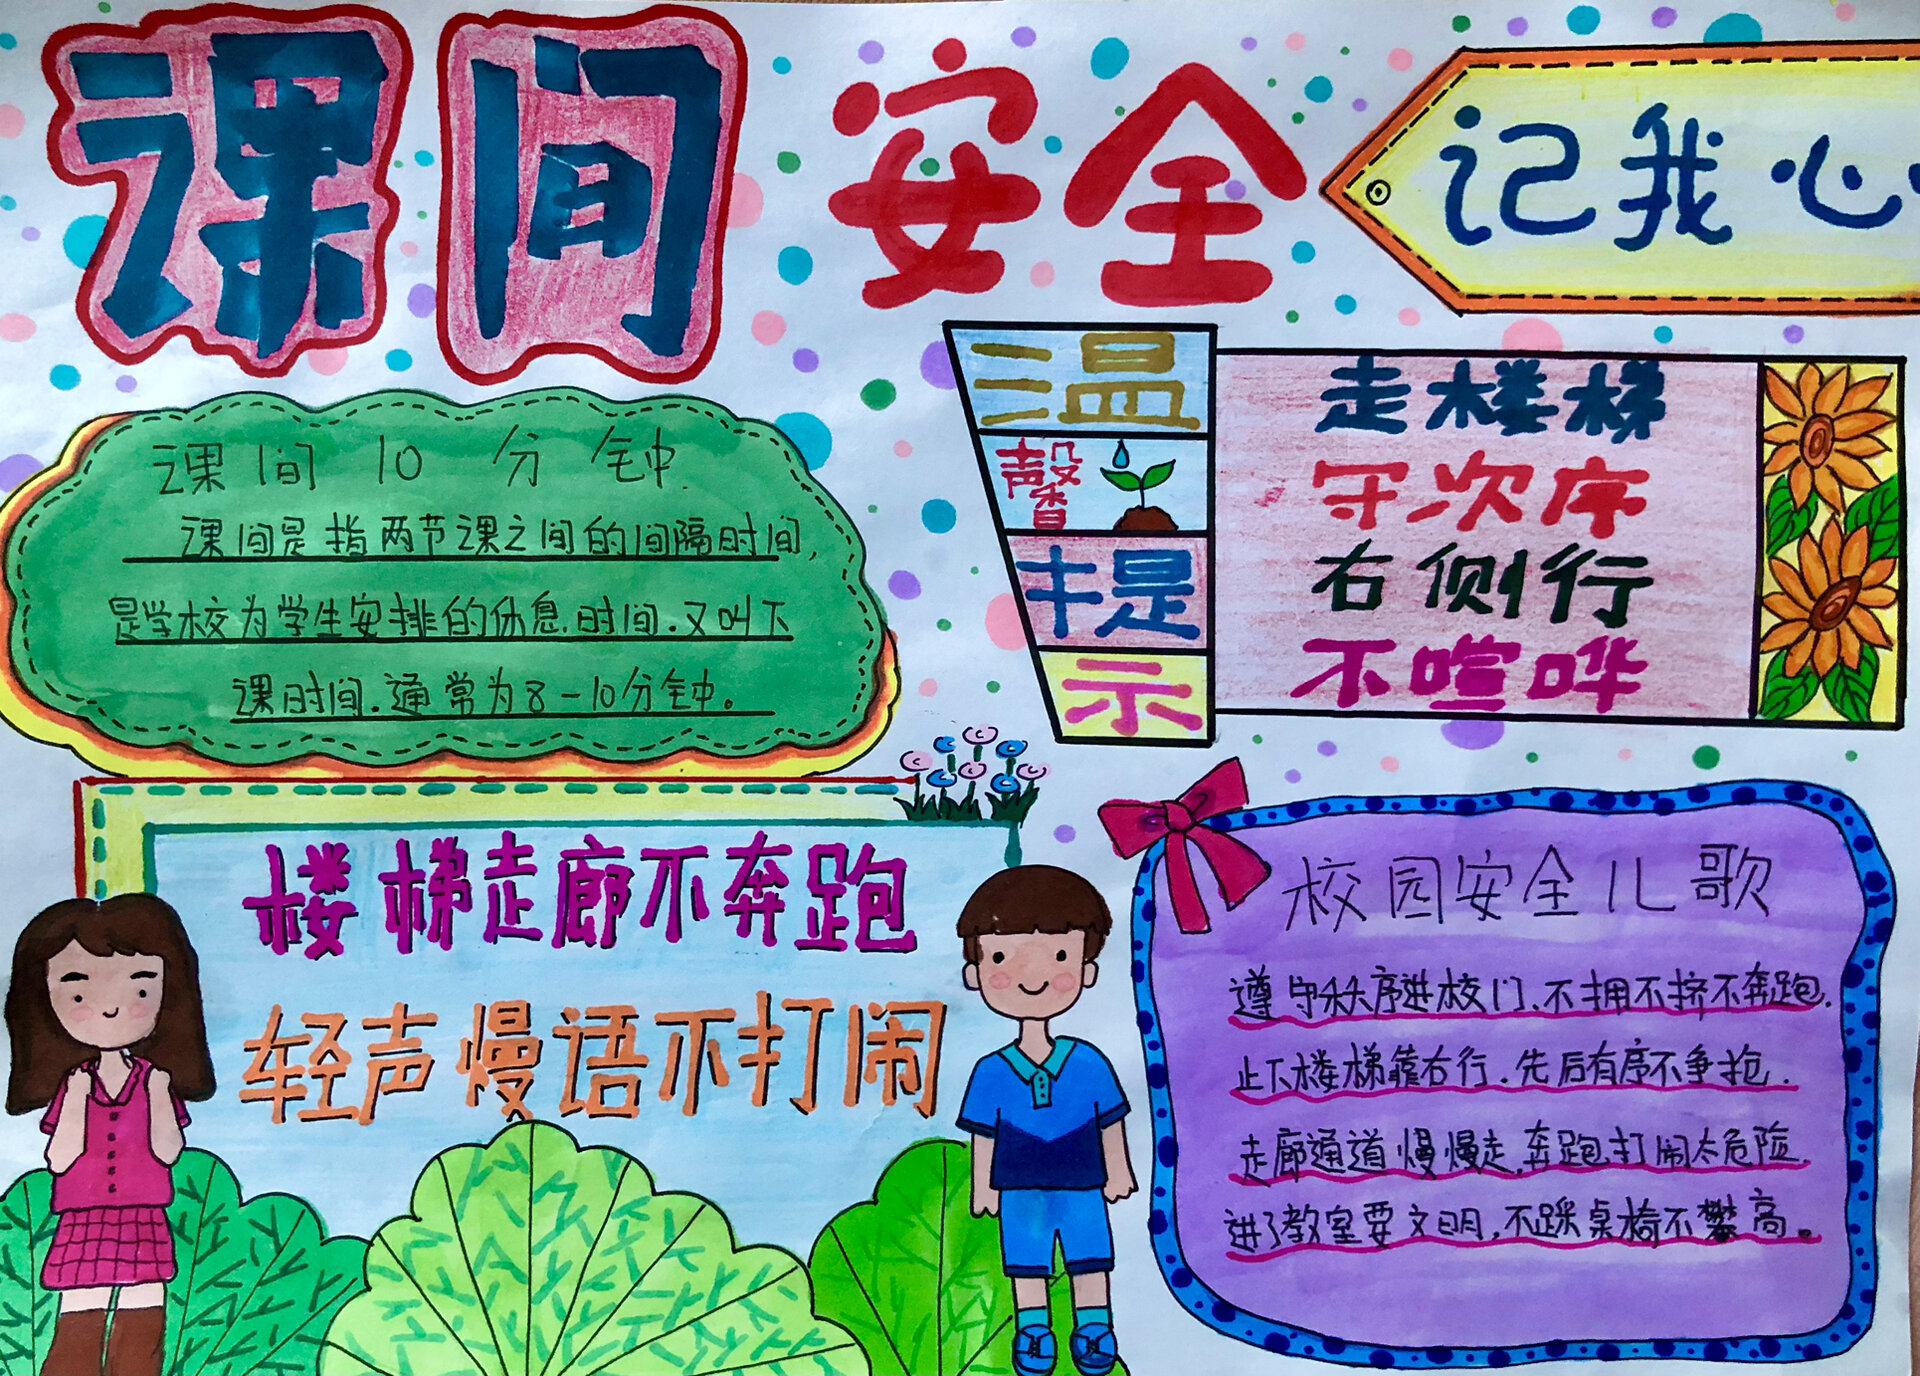 课间安全
记我心
课间10分钟
课间是指两节课之间的间隔时间,
是学校为学生安排的休息时间.又叫下
课时间.通常为8-10分钟。
温馨提示
走楼梯
守次序
右侧行
不喧哗
楼梯走廊不奔跑
轻声慢语不打闹
校园安全儿歌
遵守秩序进校门.不拥不挤不奔跑.
上下楼梯靠右行.先后有序不争抢.
走廊通道慢慢走,奔跑打闹太危险.
进了教室要文明,不踩桌椅不攀高。